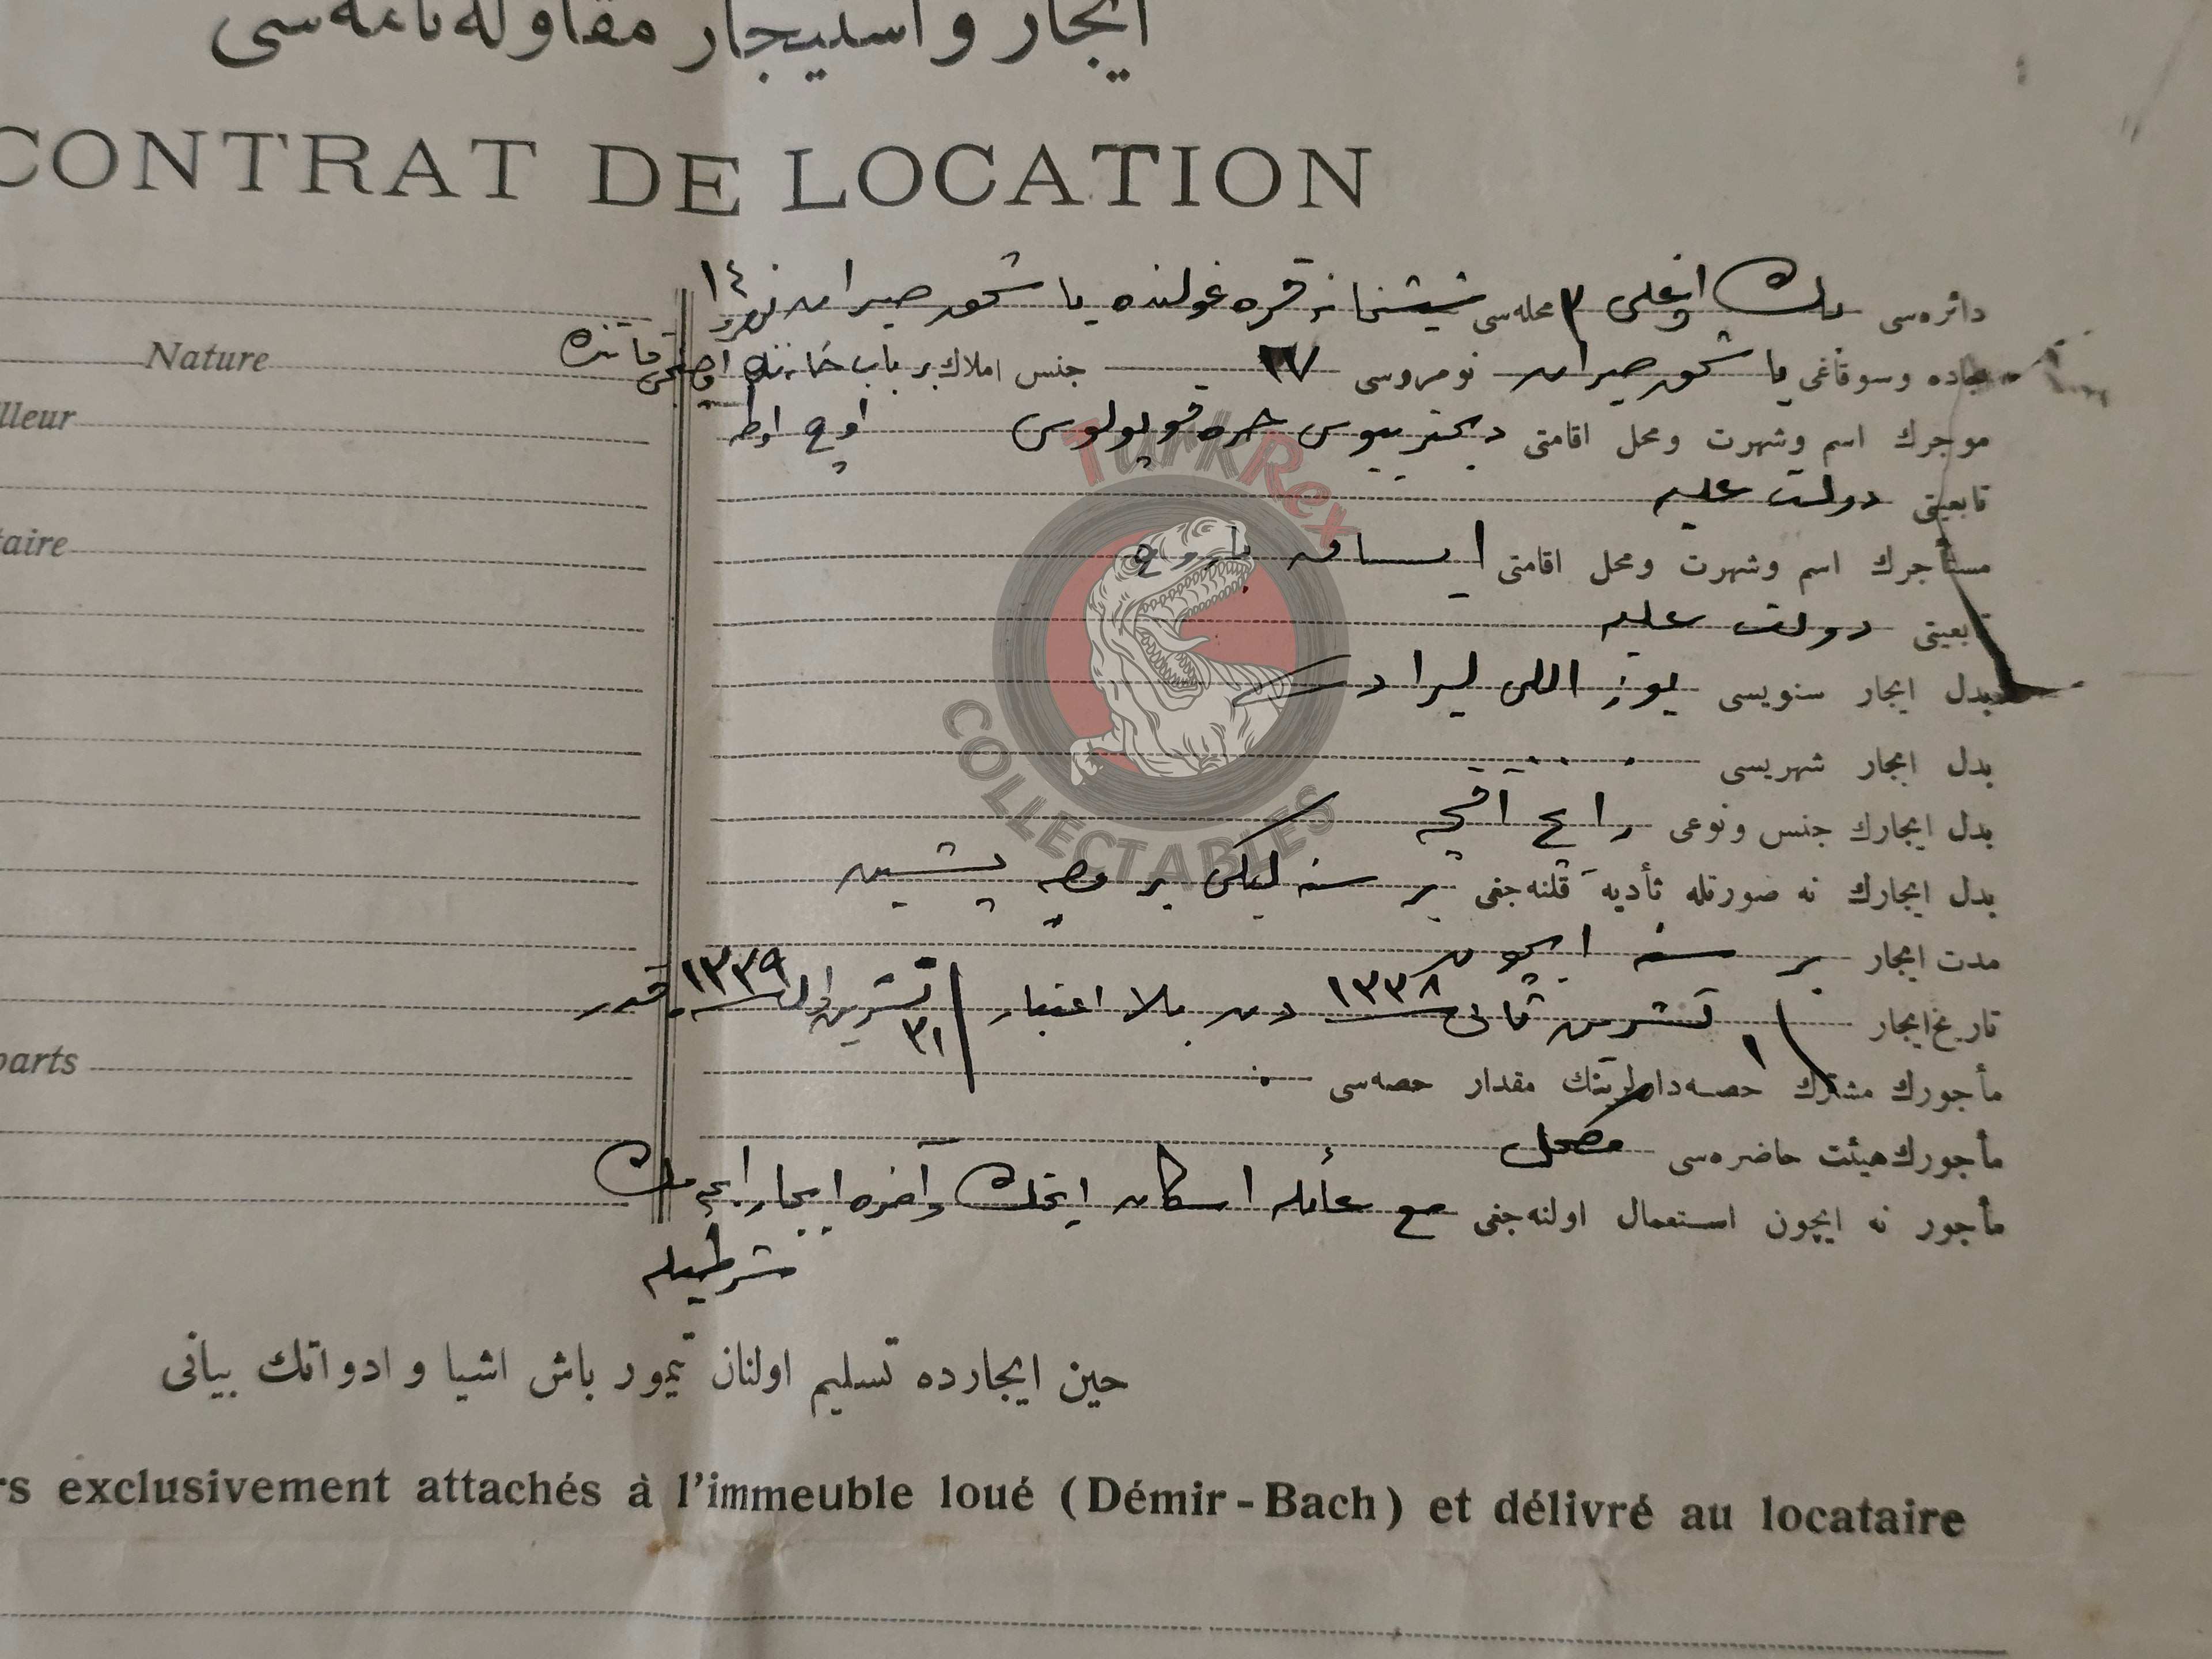 ایجار و استیجار مقاوله‌نامه‌سی
CONTRAT DE LOCATION
دائره‌سی بك اوغلی ٣ محله‌سی شیشخانه قره غولنده یا نومرو ١٤
Nature
جاده وسوقاغی نومروسی ٢٧ جنس املاك بر باب خانه‌نك
lleur
موجرك اسم وشهرت ومحل اقامتی دیمتریوس اوچ اوطه
تابعیتی دولت علیه
taire
مستأجرك اسم وشهرت ومحل اقامتی
تابعیتی دولت علیه
بدل ایجار سنویسی یوز اللی لیرا در
بدل ایجار شهریسی
بدل ایجارك جنس ونوعی رایج آقچه
بدل ایجارك نه صورتله تأدیه قلنه‌جغی بر سنه‌لیكی بر پشین
مدت ایجار بر سنه ایچون
تاریخ ایجار ١ تشرین ثانی ١٣٣٨ دن بالاعتبار ٣١ تشرین اول ١٣٣٩ قدر
parts
مأجورك مشترك حصه‌دار مقدار حصه‌سی
مأجورك هیئت حاضره‌سی مكمل
مأجور نه ایچون استعمال اولنه‌جغی مع عائله اسكان ایتمك و آخره ایجار ایتمه‌مك
شرطیله
حین ایجارده تسلیم اولنان تیمور باش اشیا و ادواتك بیانی
rs exclusivement attachés à l'immeuble loué (Démir-Bach) et délivré au locataire
TurkRex
COLLECTABLES